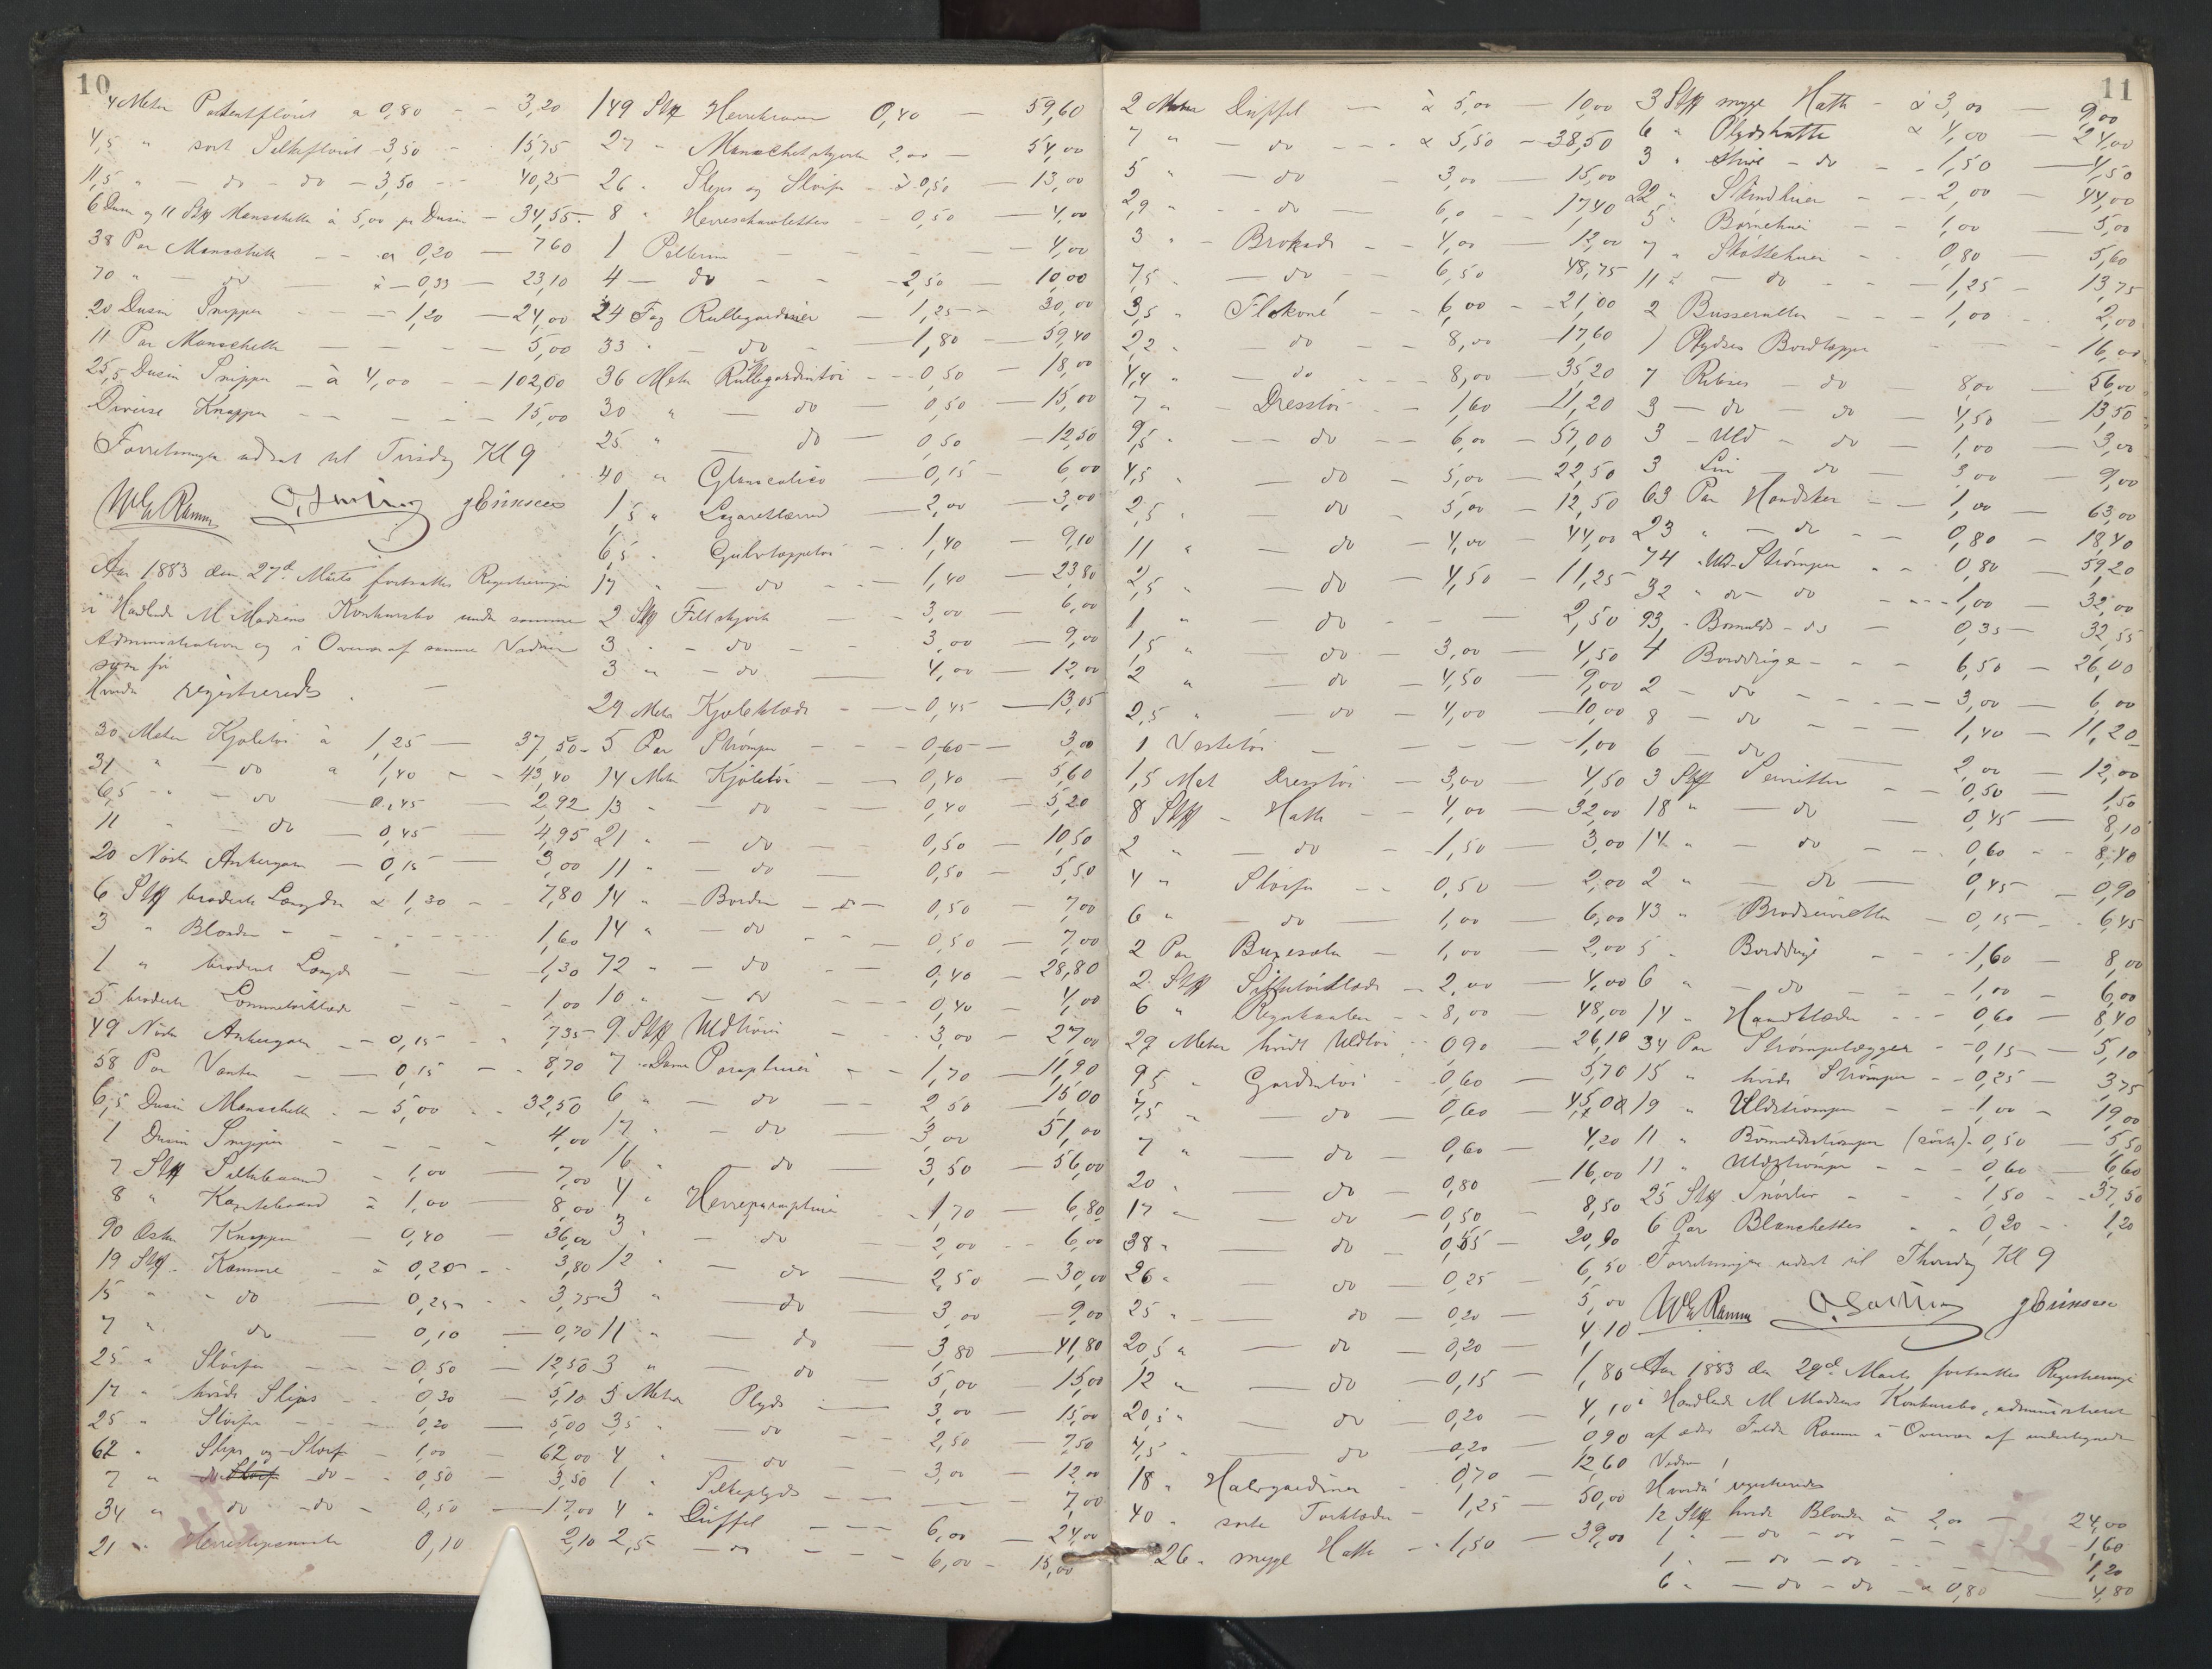 10
4 Meter Patentfløiel a 0,80 - - 3,20
4,5 " sort Silkefløiel - 3,50 - 15,75
11,5 " - do - do - 3,50 - - 40,25
6 Dusin og 11 Stk Manschetter á 5,00 pr Dusin - 34,55
38 Par Manschetter - - a 0,20 - 7 60
70 " - do - á - 0,33 - 23,10
20 Dusin Snipper - - - 1,20 - 24,00
11 Par Manschetter - - - - 5,00
25,5 Dusin Snipper - à 4,00 - - 102,00
Diverse Knapper - - - - 15,00
Forretningen udsat til Tirsdag Kl 9
Aar 1883 den 27d Marts fortsattes Registreringen
i Handlende M Madsens Konkursbo under samme
Administration og i Overvær af samme Vidner
som før
Hvorda registreredes. -
30 Meter Kjoletøi à 1,25 - 37,50
31 " - do a 1,40 - - 43,40
6,5 " - do - 0,45 - 2,92
11 " - do - 0,45 - 4,95
20 Nøster Ankergarn - 0,15 - 3,00
6 Stk broderte Længder á 1,30 - - 7,80
3 " Blonder - - - - - 1,60
1 " broderet Længde - - 1,30
5 broderte Lommetørklæde - - 1,00
49 Nøster Ankergarn - - 0,15 - - 7,35
58 Par Vanter - - 0,15 - - 8,70
6,5 Dusin Manschetter - - 5,00 - - 32,50
1 Dusin Snipper - - - - 4,00
7 Stk Silkebaand - 1,00 - 7,00
8 " Kantebaand à 1,00 - 8,00
90 Æsker Knapper - 0,40 - 36,00
19 Stk. Kamme - à 0,20 - - 3,80
15 " - do - 0,25 - - 3,75
7 " do - 0,10 - 0,70
25 " Sløifer - - - 0,50 - 12,50
17 " hvide Slips - - 0,30 - 5,10
25 " Sløifer - - - 0,20 - 5,00
62 " Slips og Sløif - 1,00 - 62,00
7 " do do - - 0,50 - 3,50
34 " do - do - 0,50 - 17,00
21 " 0,10 2,10
149 Stk Herrekraver 0,40 - 59,60
27 " Manschetskjorter 2,00 - 54,00
26 " Slips og Sløifer - à 0,50 - 13,00
8 " - - 0,50 - 4,00
1 Pellerin - - - - - 4,00
4 - do - - - 2,50 - 10,00
24 Fag Rullegardiner - 1,25 - - 30,00
33 " - do - - 1,80 - 59,40
36 Meter Rullegardintøi - - 0,50 - 18,00
30 " - do - 0,50 - 15,00
25 " - do - 0,50 - 12,50
40 " Glanscalico - 0,15 - 6,00
1,5 " Lazaretlærred - 2,00 - 3,00
6,5 " Gulvtæppetøi - - 1,40 - 9,10
17 " - do - - 1,40 - 23,80
2 Stk Filtskjørter - - 3,00 - 6,00
3 " - do - - 3,00 - 9,00
3 " - do - 4,00 - 12,00
29 Meter Kjoleklæde - - - 0,45 - 13,05
5 Par Strømper - - - 0,60 - 3,00
14 Meter Kjoletøi - - 0,40 - 5,60
13 " - do - - 0,40 - 5,20
21 " - do - 0,50 - 10,50
11 " - do - 0,50 - 5,50
14 " - Border - - 0,50 - 7,00
14 " - do - - - 0,50 - 7,00
72 " - do - - 0,40 - 28,80
10 " - do - - 0,40 - 4,00
9 Stk Uldtrøier - - 3,00 - 27,00
7 " Dame Paraplyer - - 1,70 - 11,90
6 " - do - 2,50 - 15,00
17 " - do - 3,00 - 51,00
16 " - do - 3,50 - 56,00
4 " Herreparaplyer - 1,70 - 6,80
3 " - do - - 2,00 - - 6,00
12 " - do - 2,50 - 30,00
3 " - do - 3,00 - 9,00
11 " - do - 3,80 - 41,80
3 " - do - 5,00 - 15,00
5 Meter Plyds - 3,00 - 15,00
3,5 - do - - 2,50 - 7,50
4 " - do - - 3,00 - 12,00
1 " Silkeplyds - - - 7,00
4 " Düffel - - - 6,00 - 24,00
2,5 - do - - - 6,00 - 15,00
11
2 Meter Düffel - à 5,00 - 10,00
7 " - do - - - á 5,50 - 38,50
5 " - do 3,00 - 15,00
2,9 " - - do - 6,0 - - 17,40
3 " - Brokade - - 4,00 - 12,00
7,5 " - do - - 6,50 48,75
3,5 " Flokoné - - 6,00 - - 21,00
2,2 " - do - - 8,00 - 17,60
4,4 " - do - - - 8,00 - 35,20
7 " - Dresstøi - - 1,60 - 11,20
9,5 " - - do - - 6,00 - 57,00
4,5 " - do - 5,00 - 22,50
2,5 " - do 5,00 - 12,50
11 " - do - 4,00 - 44,00
2,5 " - do - 4,50 - 11,25
1 " - do - - - 2,50
1,5 " - do - 3,00 - 4,50
2 " - do - 4,50 - 9,00
2,5 " - do - 4,00 - 10,00
1 Vestetøi - - - - 1,00
1,5 Met Dresstøi - 3,00 - 4,50
8 Stk - Hatte - - 4,00 - 32,00
2 " - do - 1,50 - 3,00
4 " Sløifer - - 0,50 - 2,00
6 " - do - 1,00 - 6,00
2 Par Buxeseler - 1,00 - 2,00
2 Stk Silketørklæde - 2,00 - 4,00
6 " Regnkaaber - - 8,00 - 48,00
29 Meter hvidt Uldtøi - 0,90 - 26,10
9,5 " Gardintøi - 0,60 - 5,70
7,5 " - do - 0,60 - 45,00
7 " - do - 0,60 - 4,20
20 " - do - 0,80 - 16,00
17 " - do - 0,50 - 8,50
38 " - do - 0,55 - 20,90
26 " - do - 0,25 - 6,50
25 " - do - 0,20 - 5,00
20,5 " - do - 0,20 - 4,10
12 " - do - 0,15 - 1,80
20,5 " - do - 0,20 - 4,10
4,5 " - do - 0,20 - 0,90
18 " Halvgardiner - 0,70 - 12,60
40 " sorte Tørklæder - 1,25 - 50,00
26 " mygge Hatte - - 1,50 - 39,00
3 Stk mygge Hatte - à 3,00 - 9,00
6 " Plydshatte á 4,00 - 24,00
3 " Stive - do - - 1,50 - 4,50
22 " Skindhuer - - 2,00 - 44,00
5 " Børnehuer - - 1,00 - 5,00
7 " Skøttehuer - - 0,80 - 5,60
11 " - do - - 1,25 - 13,75
2 Busseruller - - - 1,00 - - 2,00
1 Plydses Bordtæppe - - 16,00
7 Ribses - do - 8,00 - 56,00
3 - do - do - 4,50 - 13,50
3 - Uld - do - 1,00 - 3,00
3 Lin - do - 3,00 - 9,00
63 Par Handsker - - 1,00 - 63,00
23 " - do - 0,80 - 18,40
74 " Uld-Strømper - - 0,80 - 59,20
32 " do - do - - - 1,00 - 32,00
93 " Bomulds - do - 0,35 - 32,55
4 Borddüge - - - 6,50 - 26,00
2 - do - - - - 3,00 - 6,00
8 - do - - - 1,40 - 11,20
6 - do - 2,00 - 12,00
3 Stk Servietter - - 0,50 - 1,50
18 " - do - 0,45 - 8,10
14 " - do - - 0,60 - - 8,40
2 " - do - 0,45 - 0,90
43 " Brødservietter - 0,15 - - 6,45
5 " Borddüge - - - 1,60 - 8,00
6 " - do - - 1,00 - 6,00
14 " Haandklæder - - - 0,60 - 8,40
34 Par Strømpelægger - - 0,15 - 5,10
15 " hvide Strømper - - 0,25 - 3,75
19 " Uldstrømper - - 1,00 - 19,00
11 " Bomuldsstrømper (sorte) - 0,50 - 5,50
11 " Uldstrømper - - - 0,60 - 6,60
25 Stk Snørliv - - - 1,50 - - 37,50
6 Par Blanchettes - - 0,20 - - 1,20
Forretningen udsat til Thorsdag Kl 9
Aar 1883 den 29d Marts fortsattes Registreringen
i Handlende M Madsens Konkursbo, administreret
af edsv Fuldm Ramm i Overvær af undertegnede
Vidner!
Hvorda registreredes
12 Stk hvide Blonder à 2,00 - 24,00
1 " - do - do - - - 1,60
1 " - do - do - - - 1,20
6 " - do - do - á 0,80 - 4,80